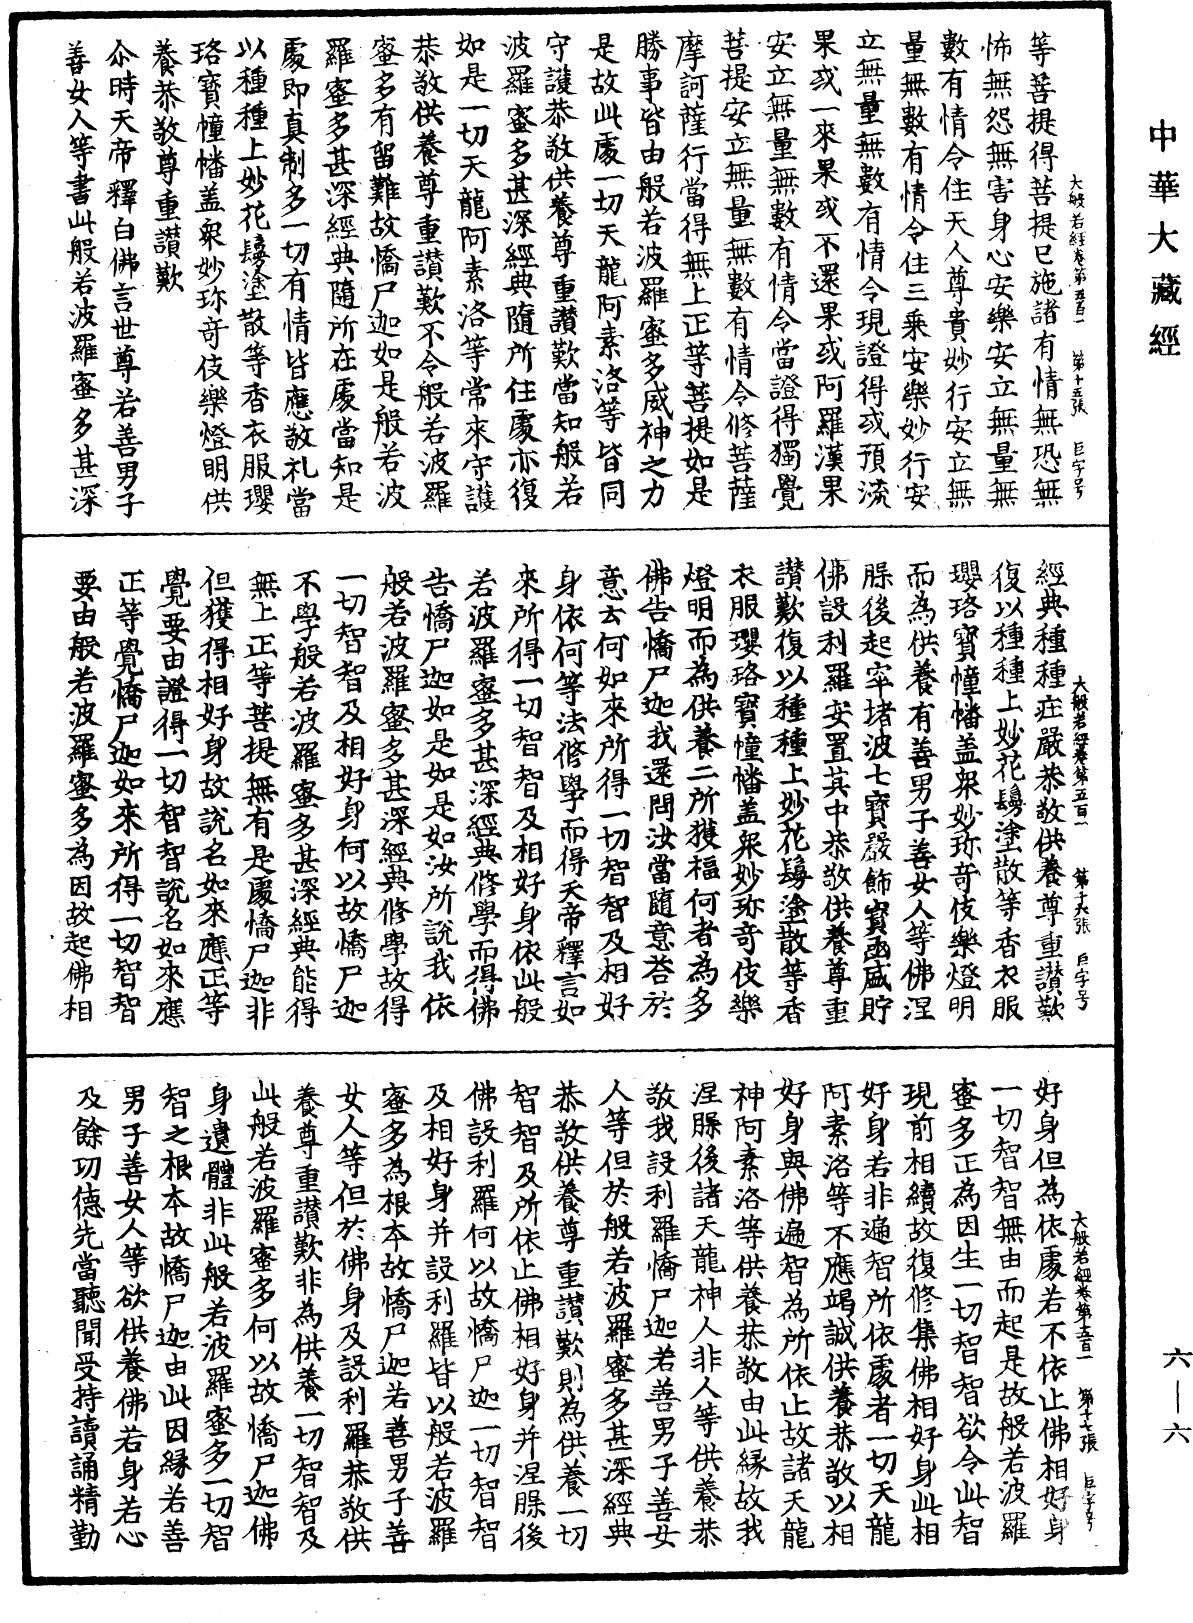 中華大藏經
大般若經卷第五百一 第十五張 巨字号
等菩提得菩提已施諸有情無恐無
怖無怨無害身心安樂安立無量無
數有情令住天人尊貴妙行安立無
量無數有情令住三乘安樂妙行安
立無量無數有情令現證得或預流
果或一來果或不還果或阿羅漢果
安立無量無數有情令當證得獨覺
菩提安立無量無數有情令修菩薩
摩訶薩行當得無上正等菩提如是
勝事皆由般若波羅蜜多威神之力
是故此處一切天龍阿素洛等皆同
守護恭敬供養尊重讚歎當知般若
波羅蜜多甚深經典隨所住處亦復
如是一切天龍阿素洛等常來守護
恭敬供養尊重讚歎不令般若波羅
蜜多有留難故憍尸迦如是般若波
羅蜜多甚深經典隨所在處當知是
處即真制多一切有情皆應敬礼當
以種種上妙花鬘塗散等香衣服瓔
珞寶幢幡盖衆妙珎奇伎樂燈明供
養恭敬尊重讚歎
尒時天帝釋白佛言世尊若善男子
善女人等書此般若波羅蜜多甚深
大般若經卷第五百一 第十六張 巨字号
經典種種莊嚴恭敬供養尊重讚歎
復以種種上妙花鬘塗散等香衣服
瓔珞寶幢幡盖衆妙珎奇伎樂燈明
而為供養有善男子善女人等佛涅
槃後起窣堵波七寶嚴飾寶函盛貯
佛設利羅安置其中恭敬供養尊重
讚歎復以種種上妙花鬘塗散等香
衣服瓔珞寶幢幡盖衆妙珎奇伎樂
燈明而為供養二所獲福何者為多
佛告憍尸迦我還問汝當隨意荅於
意云何如來所得一切智智及相好
身依何等法修學而得天帝釋言如
來所得一切智智及相好身依此般
若波羅蜜多甚深經典修學而得佛
告憍尸迦如是如是如汝所說我依
般若波羅蜜多甚深經典修學故得
一切智智及相好身何以故憍尸迦
不學般若波羅蜜多甚深經典能得
無上正等菩提無有是處憍尸迦非
但獲得相好身故說名如來應正等
覺要由證得一切智智說名如來應
正等覺憍尸迦如來所得一切智智
要由般若波羅蜜多為因故起佛相
大般若經卷第五百一 第十七張 巨字号
好身但為依處若不依止佛相好身
一切智智無由而起是故般若波羅
蜜多正為因生一切智智欲令此智
現前相續故復修集佛相好身此相
好身若非遍智所依處者一切天龍
阿素洛等不應竭誠供養恭敬以相
好身與佛遍智為所依止故諸天龍
神阿素洛等供養恭敬由此緣故我
涅槃後諸天龍神人非人等供養恭
敬我設利羅憍尸迦若善男子善女
人等但於般若波羅蜜多甚深經典
恭敬供養尊重讚歎則為供養一切
智智及所依止佛相好身并涅槃後
佛設利羅何以故憍尸迦一切智智
及相好身并設利羅皆以般若波羅
蜜多為根本故憍尸迦若善男子善
女人等但於佛身及設利羅恭敬供
養尊重讚歎非為供養一切智智及
此般若波羅蜜多何以故憍尸迦佛
身遺體非此般若波羅蜜多一切智
智之根本故憍尸迦由此因緣若善
男子善女人等欲供養佛若身若心
及餘功德先當聽聞受持讀誦精勤
六—六